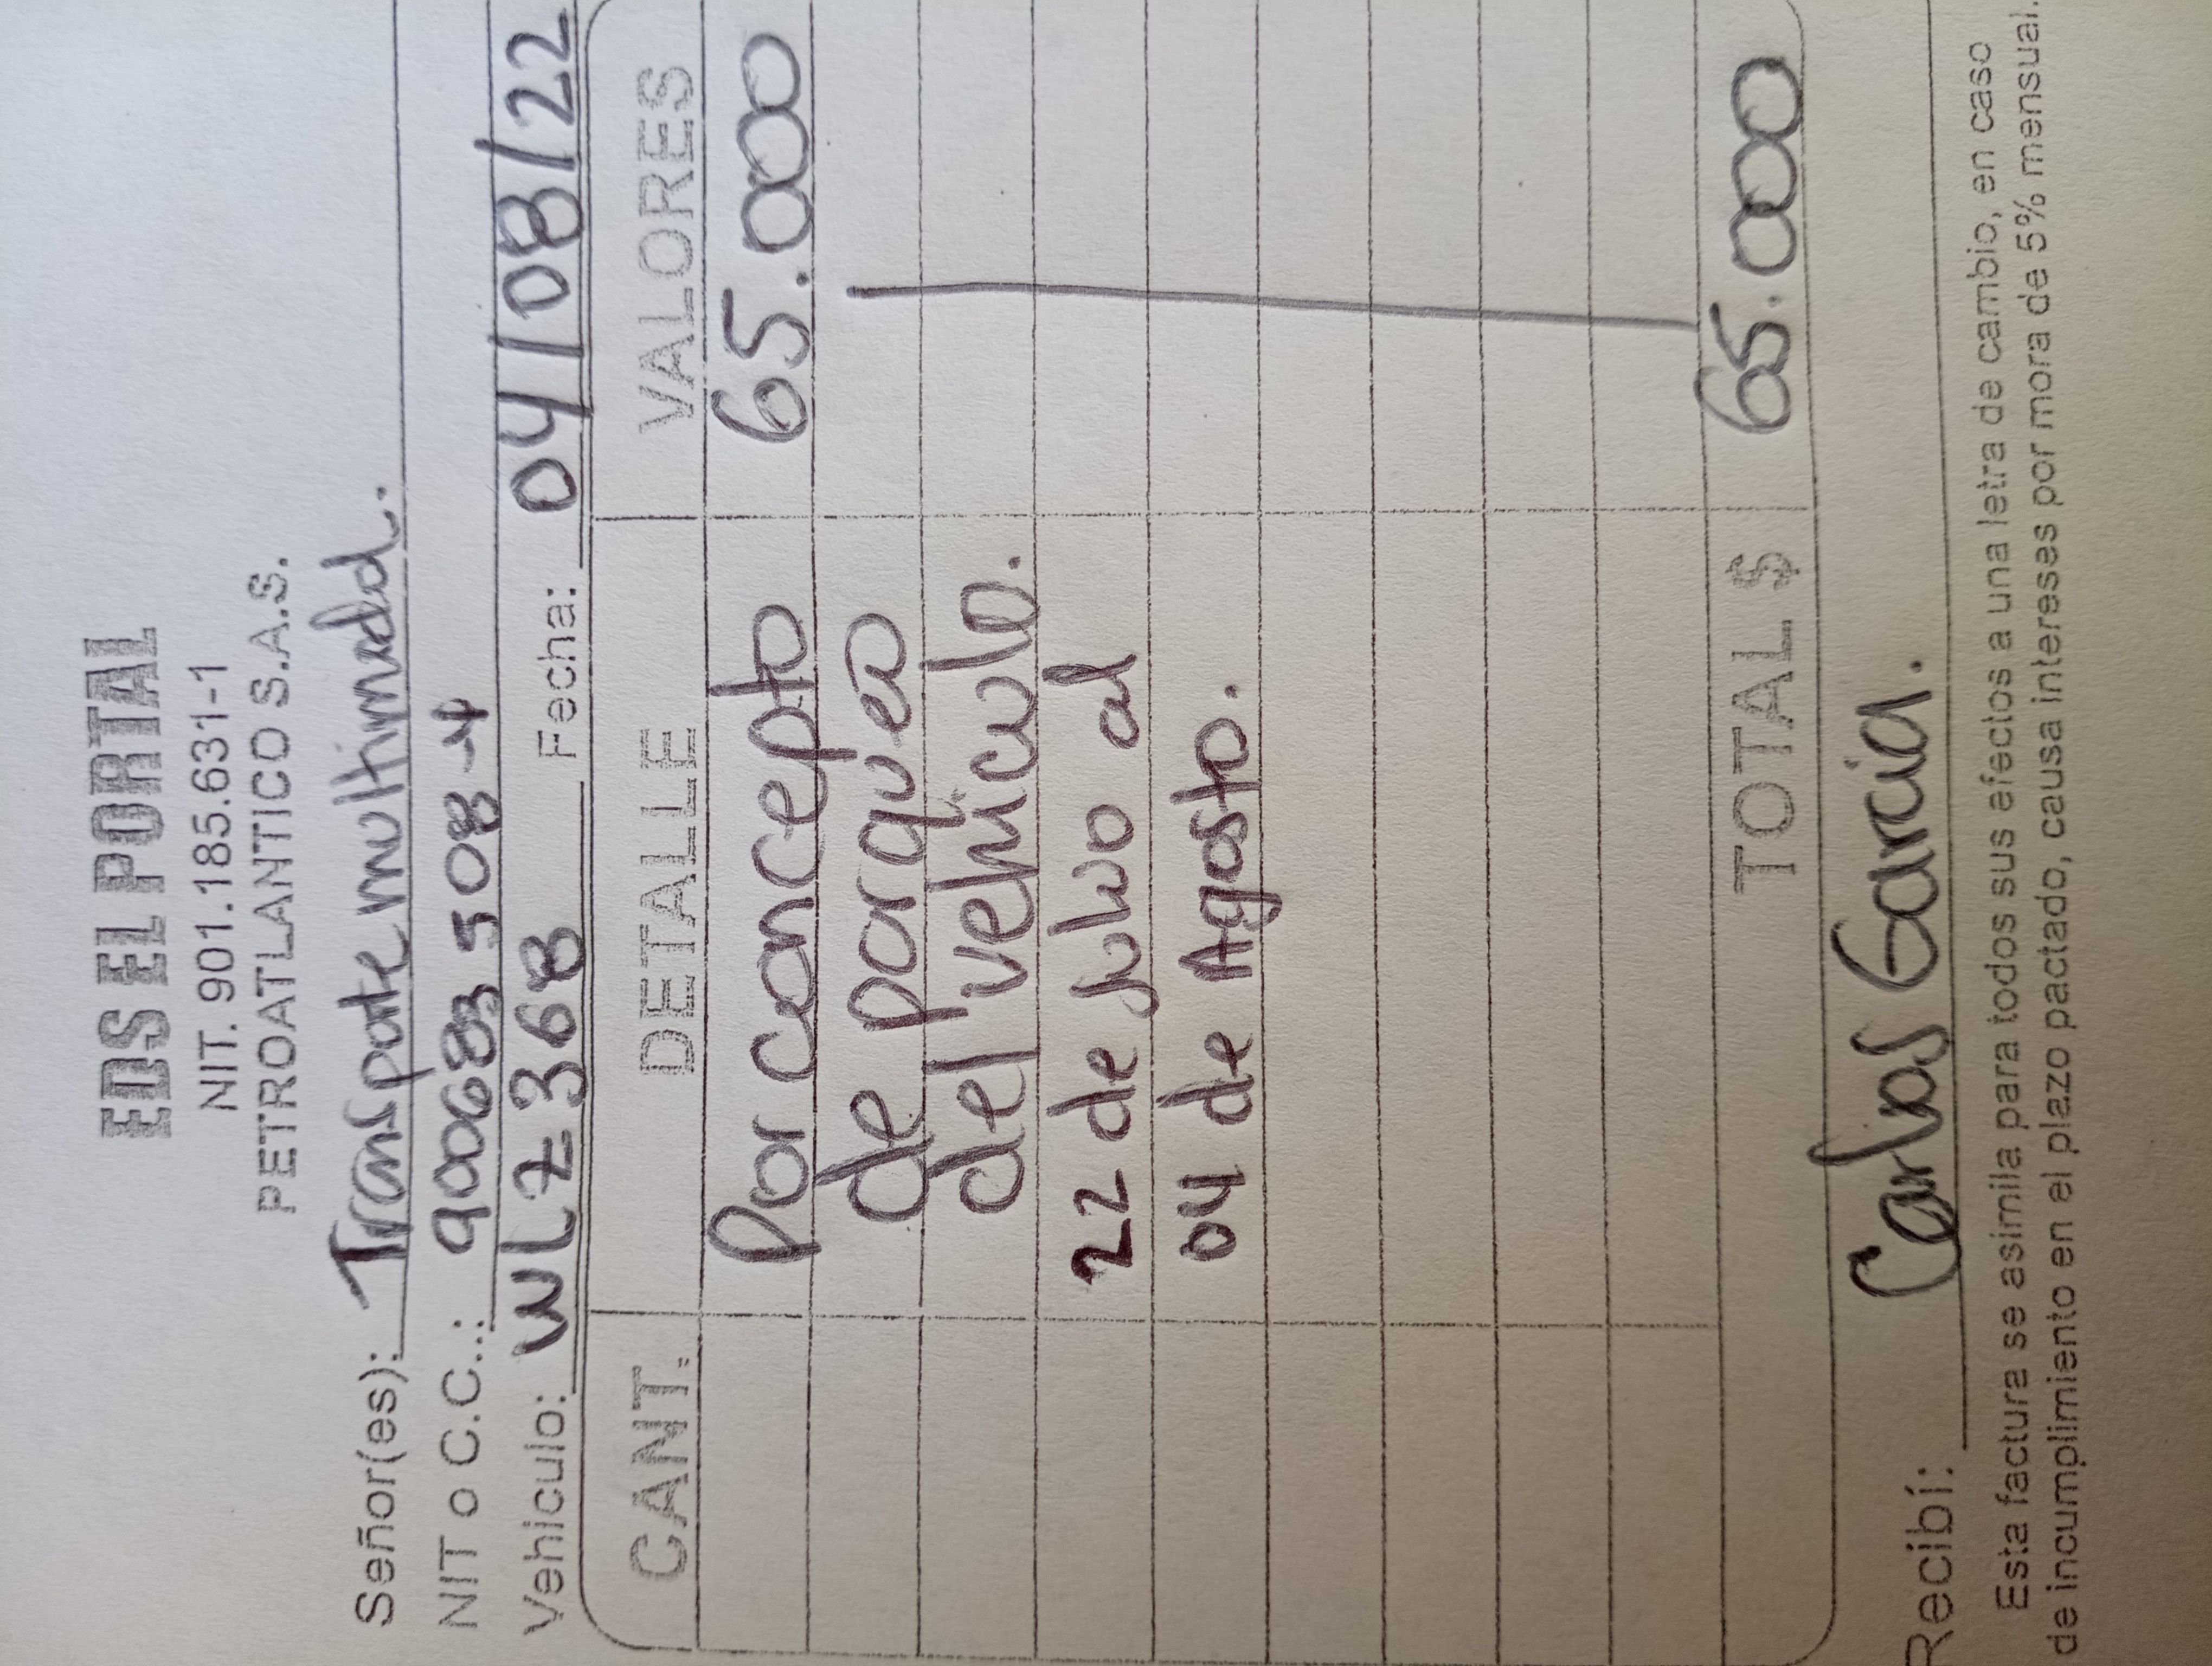 EDS EL PORTAL
NIT. 901.185.631-1
PETROATLANTICO S.A.S.
Señor(es): Transpote multimodal.
NIT o C.C.: 900683508-4
Vehiculo: WLZ368 Fecha: 04/08/22
CANT. DETALLE VALORES
Por concepto 65.000
de parqueo
del vehiculo.
22 de Julio al
04 de Agosto.
TOTAL $ 65.000
Recibí: Carlos Garcia.
Esta factura se asimila para todos sus efectos a una letra de cambio, en caso
de incumplimiento en el plazo pactado, causa intereses por mora de 5% mensual.